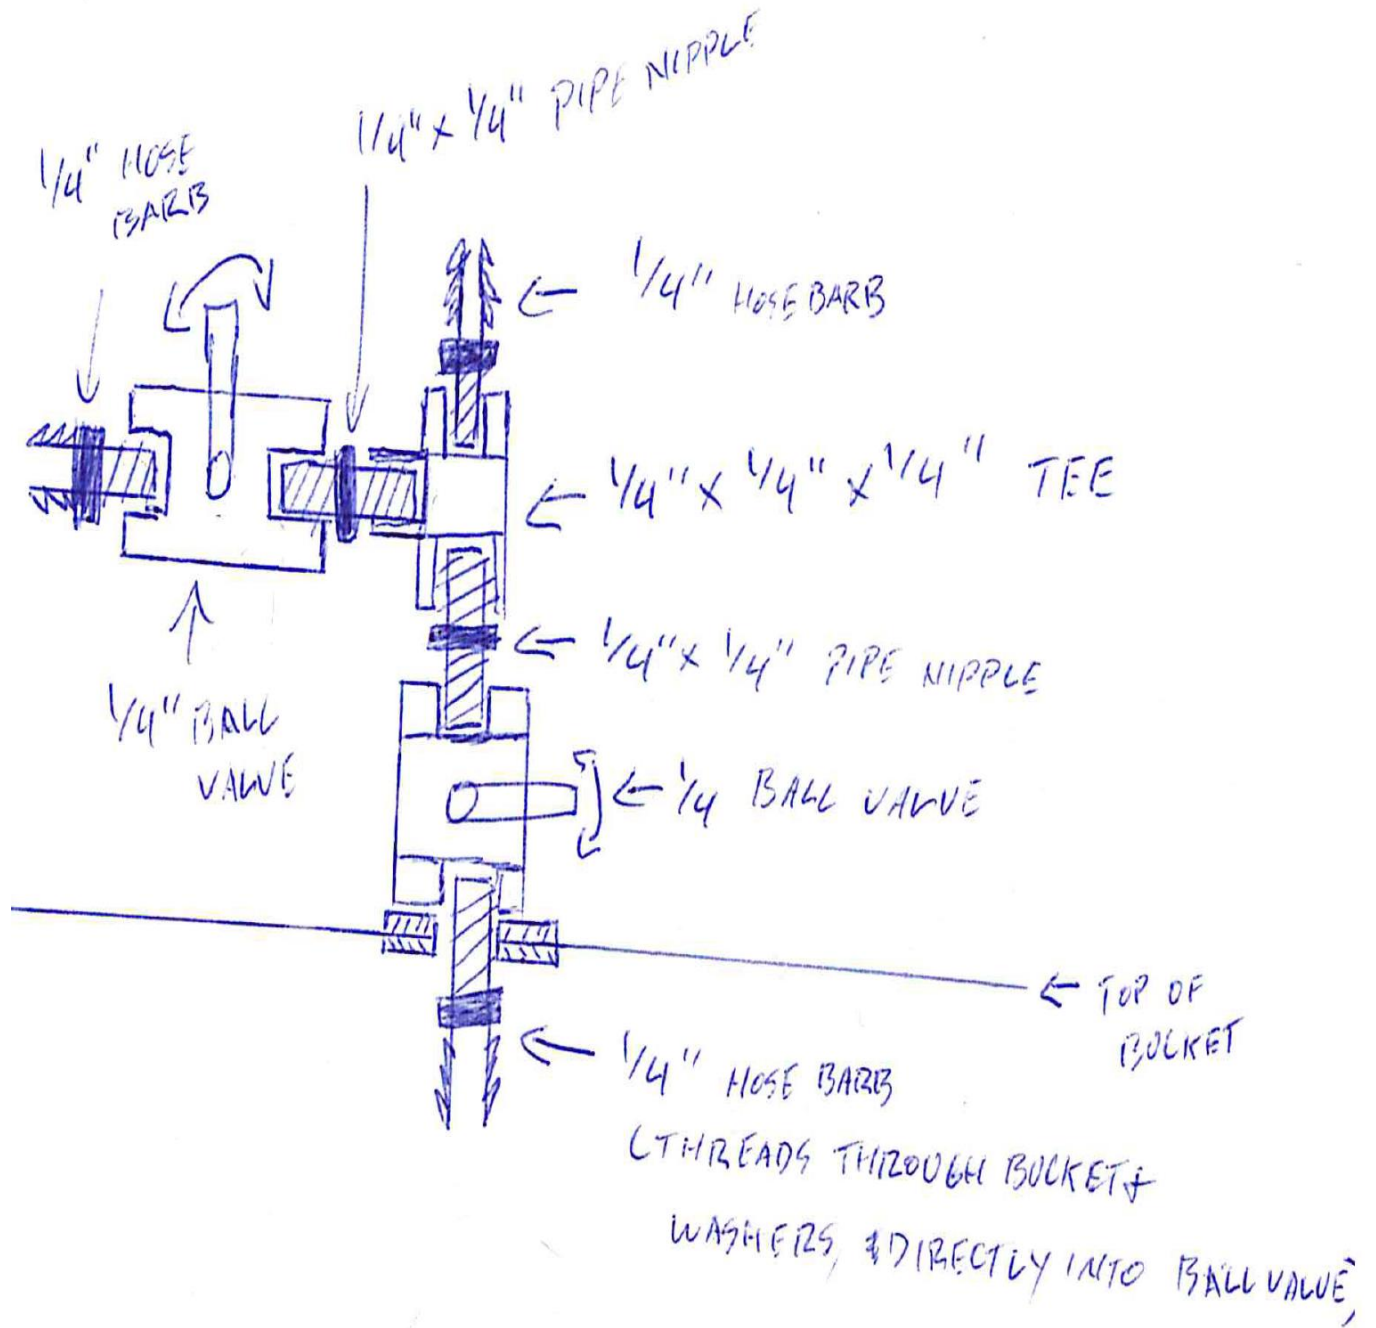 1/4" x 1/4" PIPE NIPPLE
1/4" HOSE
BARB
1/4" HOSE BARB
1/4" x 1/4" x 1/4" TEE
1/4" x 1/4" PIPE NIPPLE
1/4" BALL
VALVE
1/4 BALL VALVE
TOP OF
BUCKET
1/4" HOSE BARB
(THREADS THROUGH BUCKET &
WASHERS, & DIRECTLY INTO BALL VALVE,